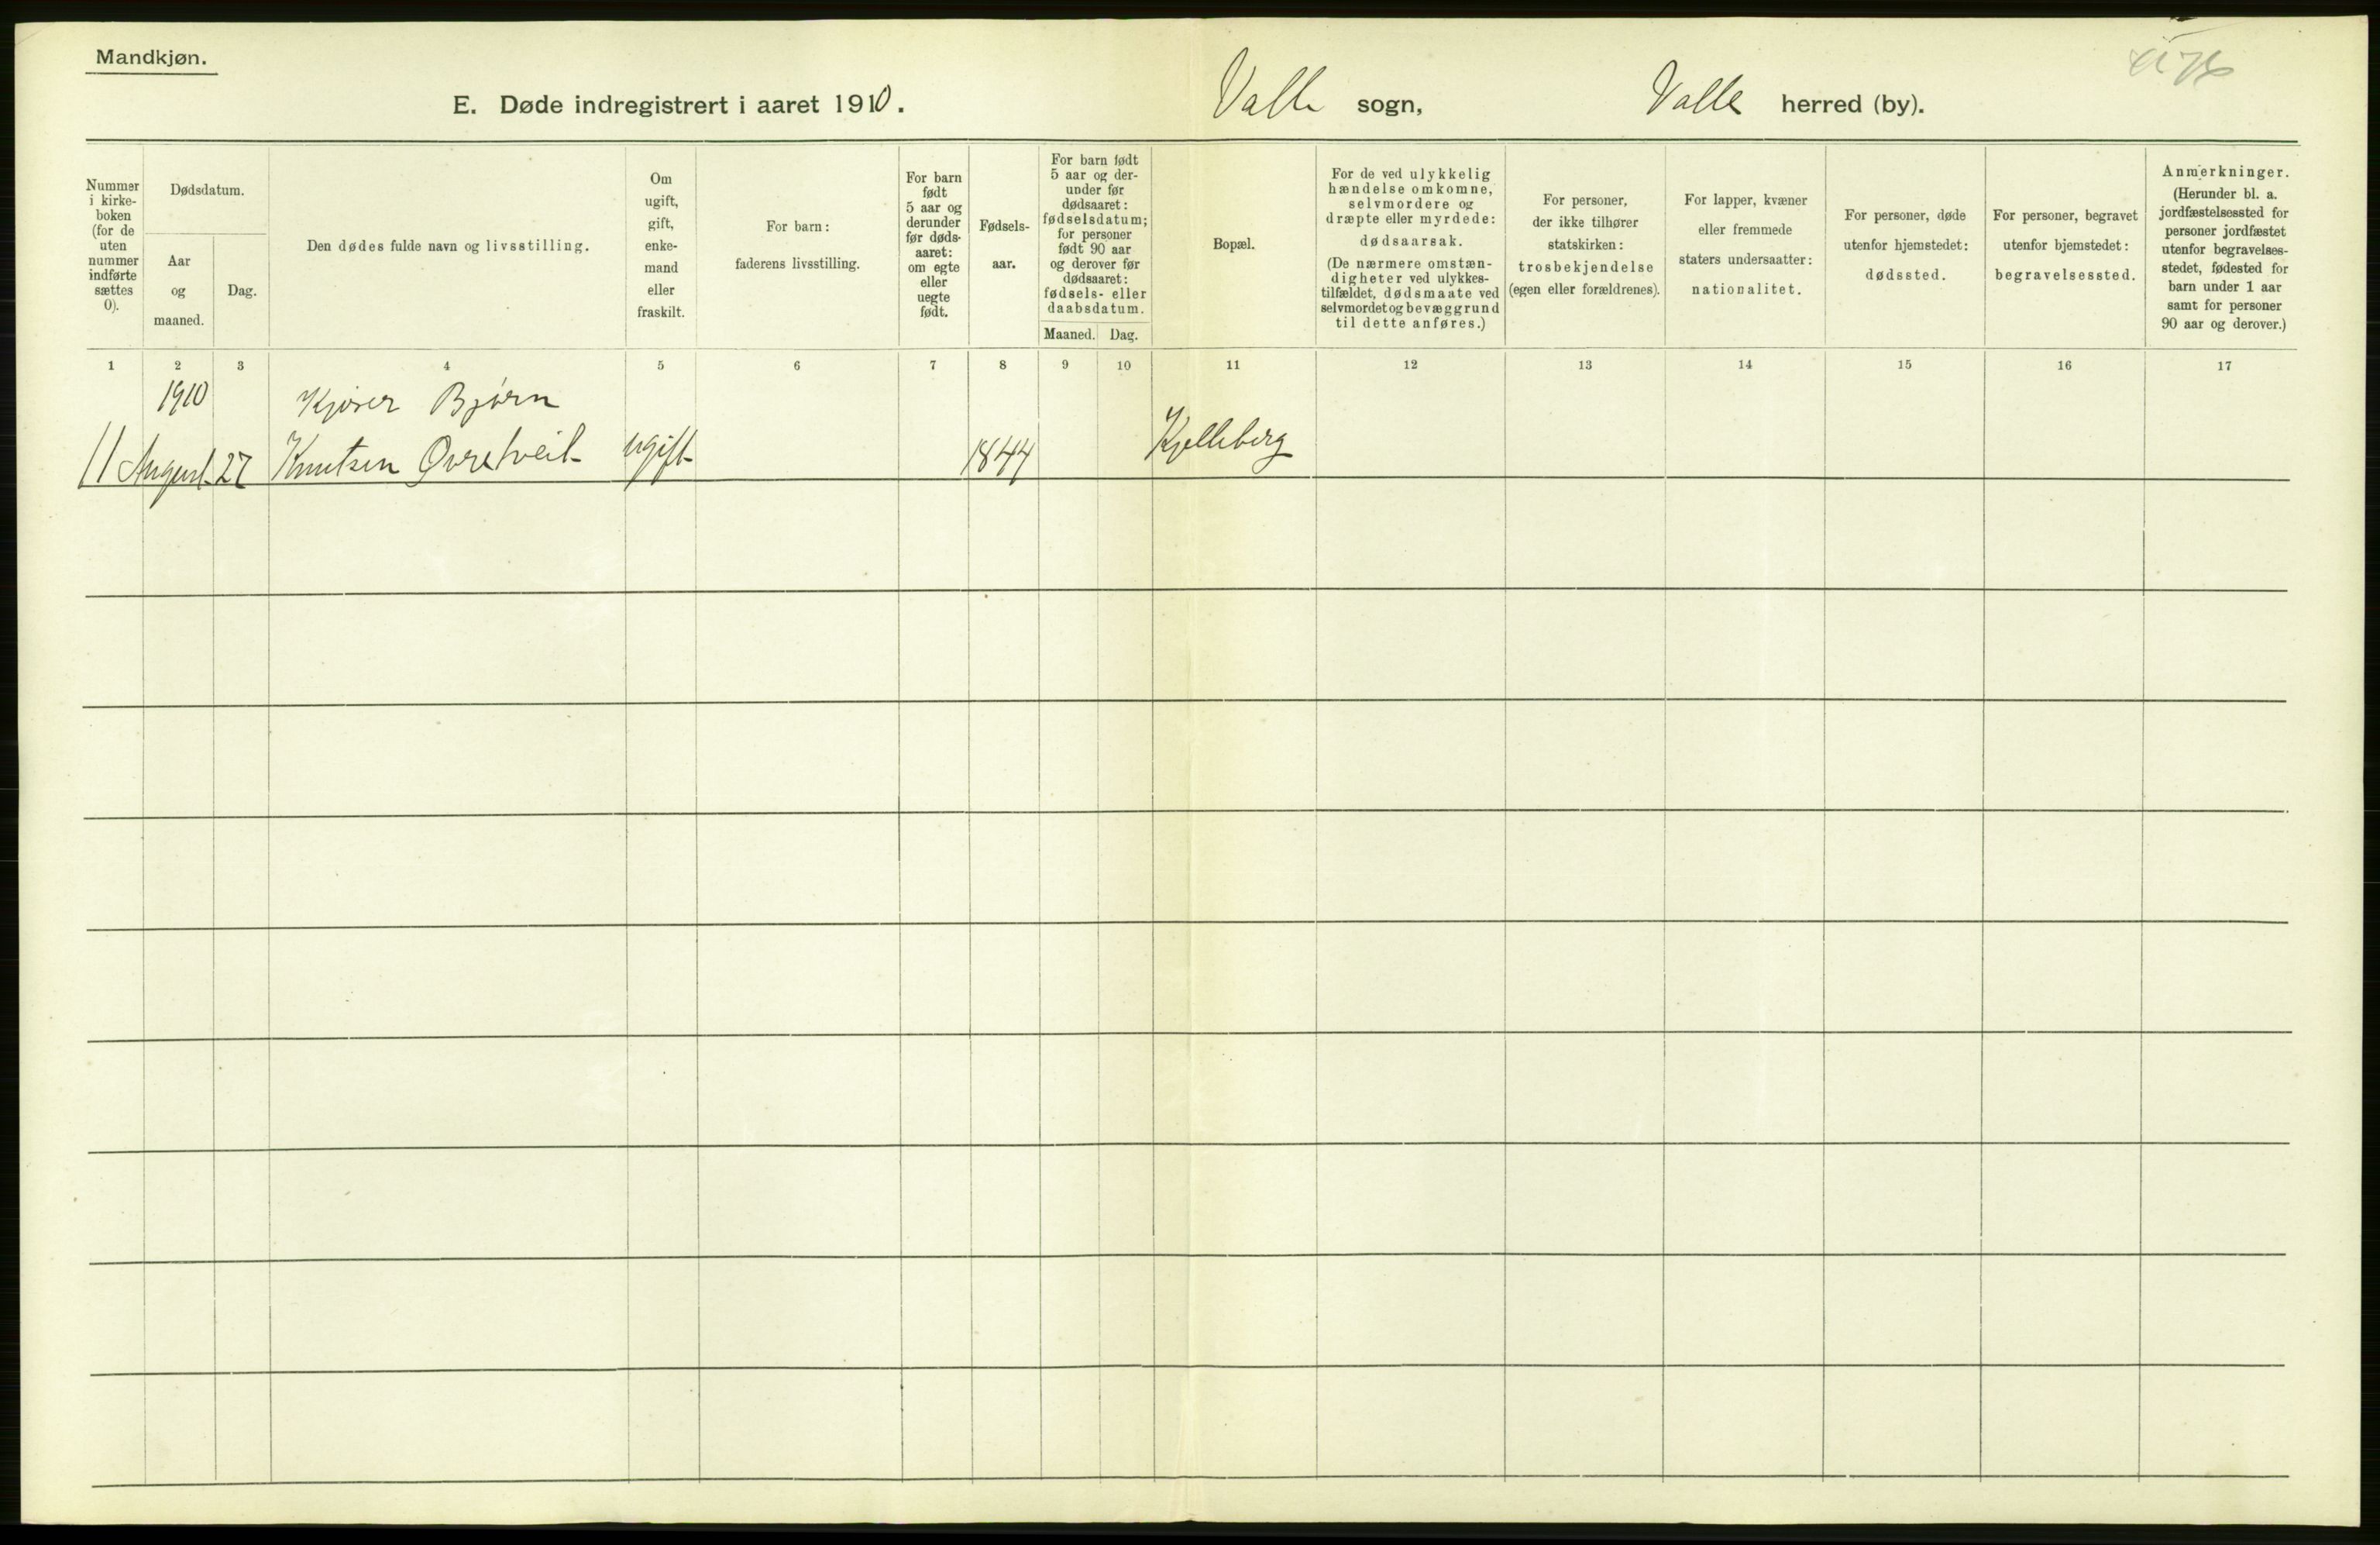 Mandkjøn.
E. Døde indregistrert i aaret 1910. Valle sogn, Valle herred (by).
Nummer
i kirke-
boken
(for de
uten
nummer
indførte
sættes
0).
Dødsdatum.
Aar
og
maaned.
Dag.
Den dødes fulde navn og livsstilling.
Om
ugift,
gift,
enke-
mand
eller
fraskilt.
For barn:
faderens livsstilling.
For barn
født
5 aar og
derunder
før døds-
aaret:
om egte
eller
uegte
født.
Fødsels-
aar.
For barn født
5 aar og der-
under før
dødsaaret:
fødselsdatum;
for personer
født 90 aar
og derover før
dødsaaret:
fødsels- eller
daabsdatum.
Maaned. Dag.
Bopæl.
For de ved ulykkelig
hændelse omkomne,
selvmordere og
dræpte eller myrdede:
dødsaarsak.
(De nærmere omstæn-
digheter ved ulykkes-
tilfældet, dødsmaate ved
selvmordet og bevæggrund
til dette anføres.)
For personer,
der ikke tilhører
statskirken:
trosbekjendelse
(egen eller forældrenes).
For lapper, kvæner
eller fremmede
staters undersaatter:
nationalitet.
For personer, døde
utenfor hjemstedet:
dødssted.
For personer, begravet
utenfor hjemstedet:
begravelsessted.
Anmerkninger.
(Herunder bl. a.
jordfæstelsessted for
personer jordfæstet
utenfor begravelses-
stedet, fødested for
barn under 1 aar
samt for personer
90 aar og derover.)
1 2 3 4 5 6 7 8 9 10 11 12 13 14 15 16 17
1910 Bjørn
11 August 27 Knutsen Øvretveit ugift 1844 Kjelleberg